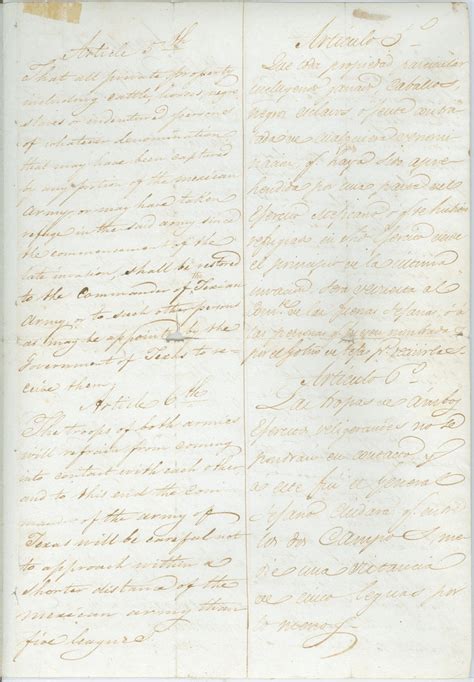 Article 5th
That all private property
including cattle, horses, negro
slaves or indentured persons
of whatever denomination
that may have been captured
by any portion of the mexican
Army or may have taken
refuge in the said army since
the commencement of the
late invasion, shall be restored
to the Commander of the Texian
Army, or to such other persons
as may be appointed by the
Government of Texas to re-
ceive them,
Article 6th
The troops of both armies
will refrain from coming
into contact with each other,
and to this end the Com-
mander of the army of
Texas will be careful not
to approach within a
shorter distance of the
mexican army than
five leagues
Articulo 5º
Que toda propiedad particular
ganado, Caballos,
negros esclavos, ó gente
de cualquiera
que haya sido apre-
hendida por una parte del
Ejercito Mejicano ó que se hubiere
en dicho Ejercito desde
el principio de la última
al
de las
por el Gobierno de Tejas
Articulo 6º
Las tropas de ambos
Ejercitos no se
pondran en contacto, y
a este fin el General
Tejano cuidará que entre
los dos Campos
de una distancia
de cinco leguas por
lo menos